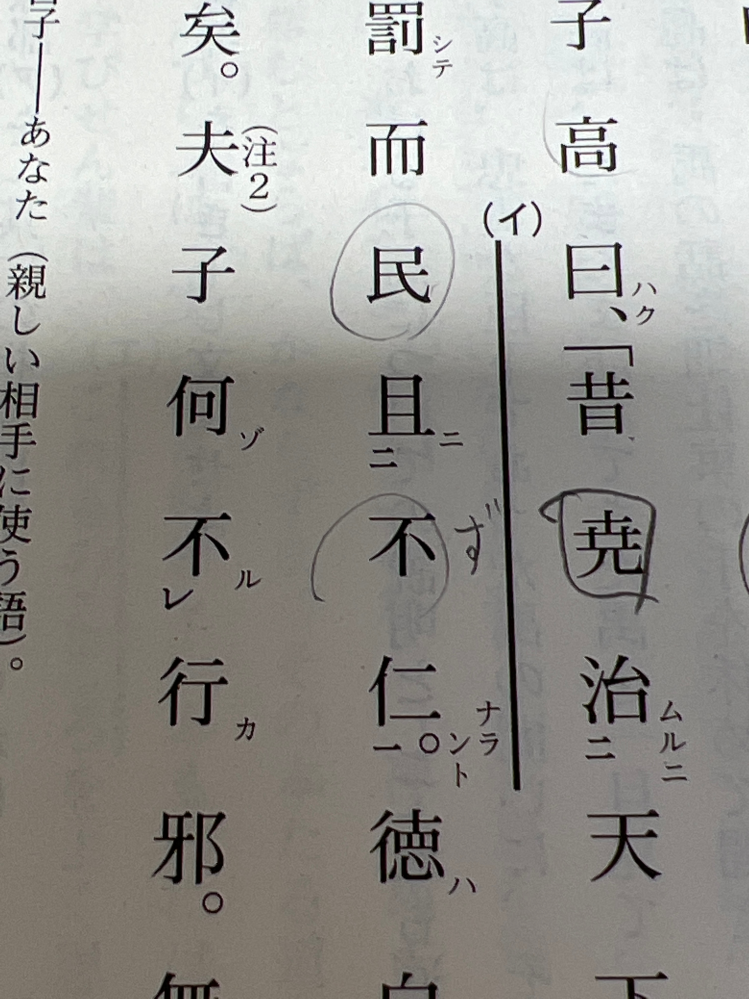 子高曰ハク、「昔尭治ムルニ二天下
(イ)
罰シテ而民且ニ二不ず仁ナラント一。徳ハ
矣。夫(注2)子何ゾ不ルレ行カ邪。無
子――あなた（親しい相手に使う語）。